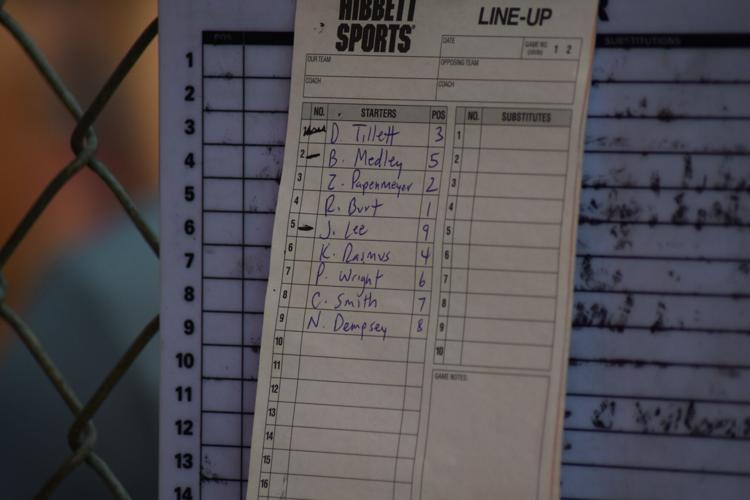 HIBBETT
SPORTS
LINE-UP
DATE
GAME NO.
1 2
OUR TEAM
OPPOSING TEAM
COACH
COACH
NO. STARTERS POS
D Tillett 3
2 B. Medley 5
3 Z. Papenmeyer 2
4 R. Burt 1
5 J. Lee 9
6 K. Rasmus 4
7 P. Wright 6
8 C. Smith 7
9 N. Dempsey 8
10
11
12
13
14
15
16
NO. SUBSTITUTES
1
2
3
4
5
6
7
8
9
10
GAME NOTES:
POS
SUBSTITUTIONS
1
2
3
4
5
6
7
8
9
10
11
12
13
14